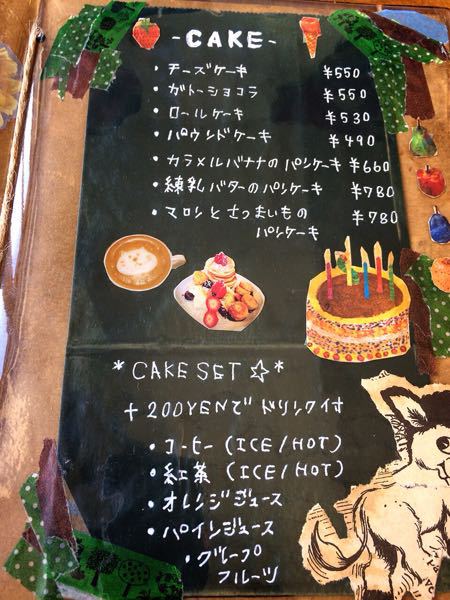 -CAKE-
・チーズケーキ ¥550
・ガトーショコラ ¥550
・ロールケーキ ¥530
・パウンドケーキ ¥490
・カラメルバナナのパンケーキ ¥660
・練乳バターのパンケーキ ¥780
・マロンとさつまいもの ¥780
パンケーキ
*CAKE SET☆*
+200YENでドリンク付
・コーヒー (ICE/HOT)
・紅茶 (ICE/HOT)
・オレンジジュース
・パインジュース
・グレープ
フルーツ